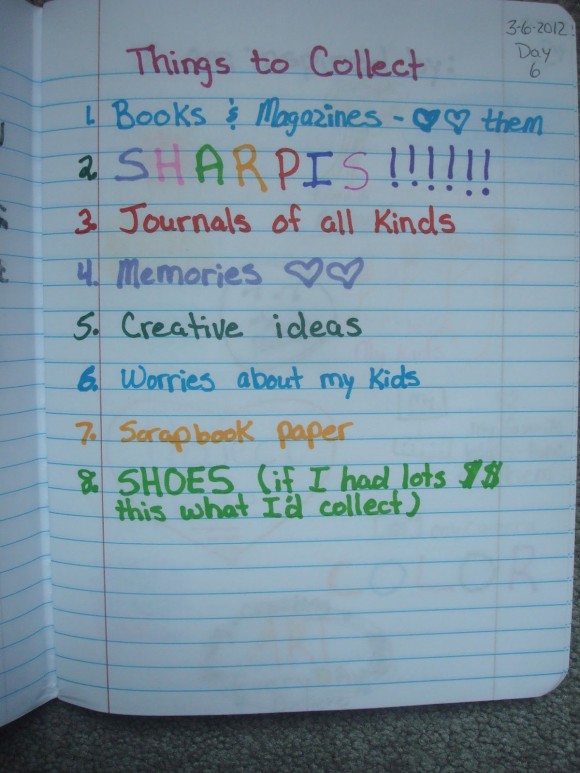 3-6-2012
Day
6
Things to Collect
1. Books & Magazines - ♡♡ them
2. SHARPIS !!!!!!
3. Journals of all Kinds
4. Memories ♡♡
5. Creative ideas
6. Worries about my Kids
7. Scrapbook paper
8. SHOES (if I had lots $$
this what I'd collect)
COLOR
ART